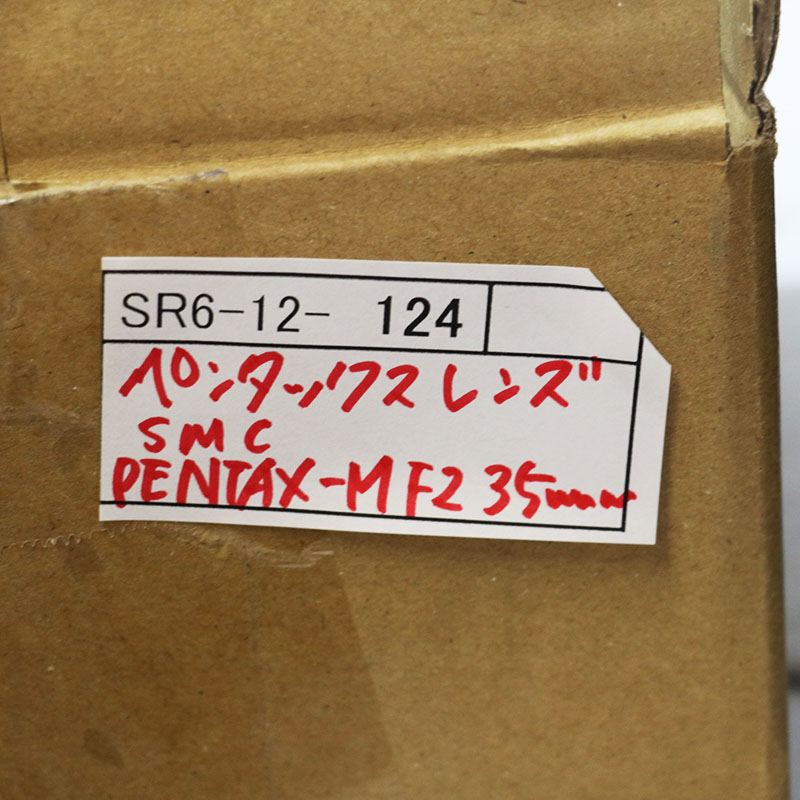 SR6-12- 124
ペンタックスレンズ
SMC
PENTAX-M F2 35mm